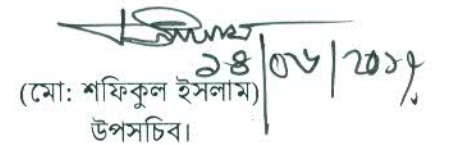 ১৪|০৬|২০১৮
(মো: শফিকুল ইসলাম)
উপসচিব।